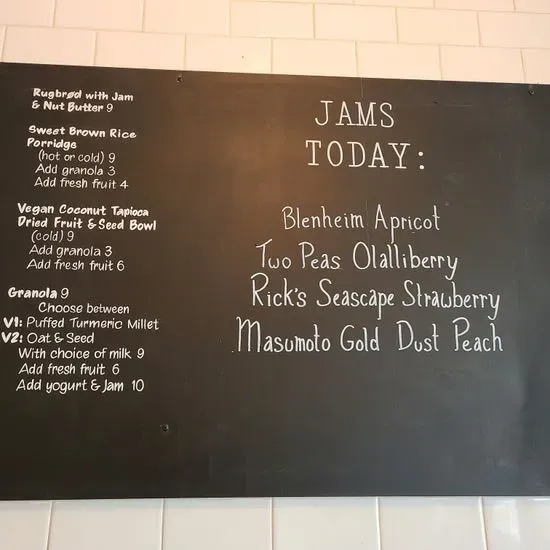 Rugbrød with Jam
& Nut Butter 9
Sweet Brown Rice
Porridge
(hot or cold) 9
Add granola 3
Add fresh fruit 4
Vegan Coconut Tapioca
Dried Fruit & Seed Bowl
(cold) 9
Add granola 3
Add fresh fruit 6
Granola 9
Choose between
V1: Puffed Turmeric Millet
V2: Oat & Seed
With choice of milk 9
Add fresh fruit 6
Add yogurt & Jam 10
JAMS
TODAY:
Blenheim Apricot
Two Peas Olalliberry
Rick's Seascape Strawberry
Masumoto Gold Dust Peach